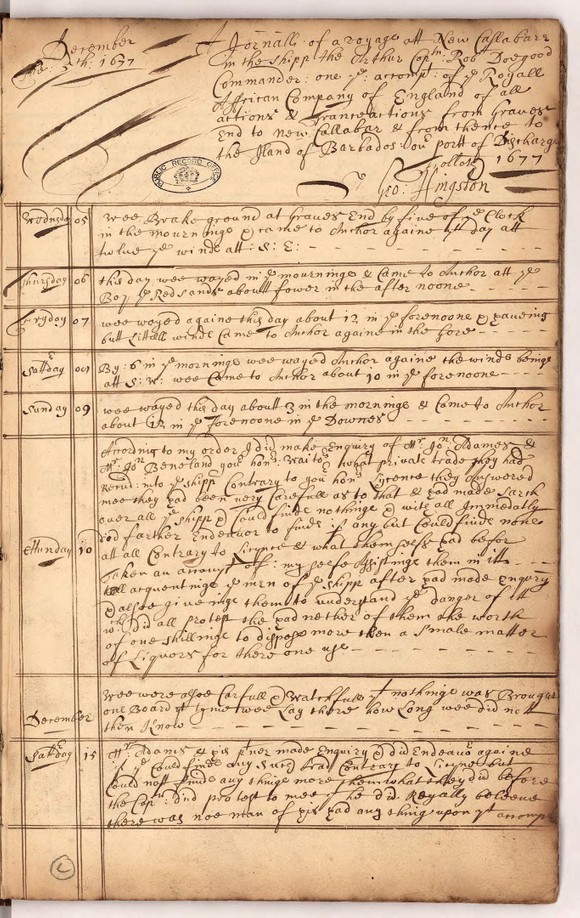 December
the 5th: 1677
A Jornall of a voyage att New Callabarr
in the Shipp the Arthur Captn Robt Doegood
Commander: one ye: accompt: of ye Royall
Affrican Company of England of all
actions & tranceactions from Graves
End to New Callabar & from thence to
the Iland of Barbados our portt of Discharge
1677
Geo: Kingston
PUBLIC RECORD OFFICE
Wednsday 05 wee Brake ground at Graves End by five of ye Clock
in the mourninge & came to Anchor againe yt day att
twelve ye winde att: S: E:
Thursday 06 this day wee wayed in ye mourninge & Came to Anchor att ye
Boy ye Red Sande aboutt fower in the after noone
Fryday 07 wee wayed againe this day about 12 in ye forenoone & haveing
butt littell winde Came to Anchor againe in the
Satterday By: 6 in ye morninge wee wayed Anchor againe the winde beinge
att S: W: wee Came to Anchor about 10 in ye forenoone
Sunday 09 wee wayed this day aboutt 3 in the morninge & Came to Anchor
about 12 in ye forenoone in ye Downes
According to my order I did make Enquiry of Mr: Jon Adames &
Mr: Jon Beneland you honrs: Waitrs what private trade they had
Recvd: into ye Shipp Contrary to you honrs Licence they Answered
mee they had been very Carefull as to that & had made Sarch
over all ye Shipp & Could finde nothinge & with all Immediatly
did farther Endeavor to finde if any but Could finde none
Munday 10 att all Contrary to Licence & what themselfs had befor
taken an account of: my selfe Assistinge them in itt
acquenting ye men of ye Shipp after had made Enquiry
& alsoe giveinge them to understand ye danger of itt
who did all protest the had nether of them the worth
of one shillinge to dispose more then a Smale matter
of Liquors for there one use
wee were alsoe Carfull & Watchfull yt nothinge was Brought
one Board ye tyme wee Lay there how Long wee did nott
December then Know
Satterday 15 Mr: Adams & his ptner made Enquiry & did Endeavor againe
if ye Could finde any such trade Contrary to Licence but
Could nott finde any thinge more then what they did before
the Captn: did protest to mee he did Royally beleeve
there was noe man of his had any thing upon yt accompt